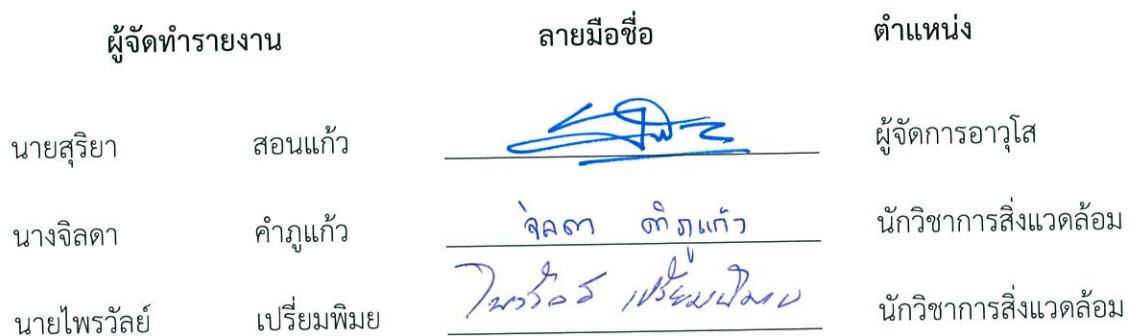 ผู้จัดทำรายงาน ลายมือชื่อ ตำแหน่ง
นายสุริยา สอนแก้ว ผู้จัดการอาวุโส
นางจิลดา คำภูแก้ว จิลดา คำภูแก้ว นักวิชาการสิ่งแวดล้อม
นายไพรวัลย์ เปรี่ยมพิมย ไพรวัลย์ เปรี่ยมพิมย นักวิชาการสิ่งแวดล้อม